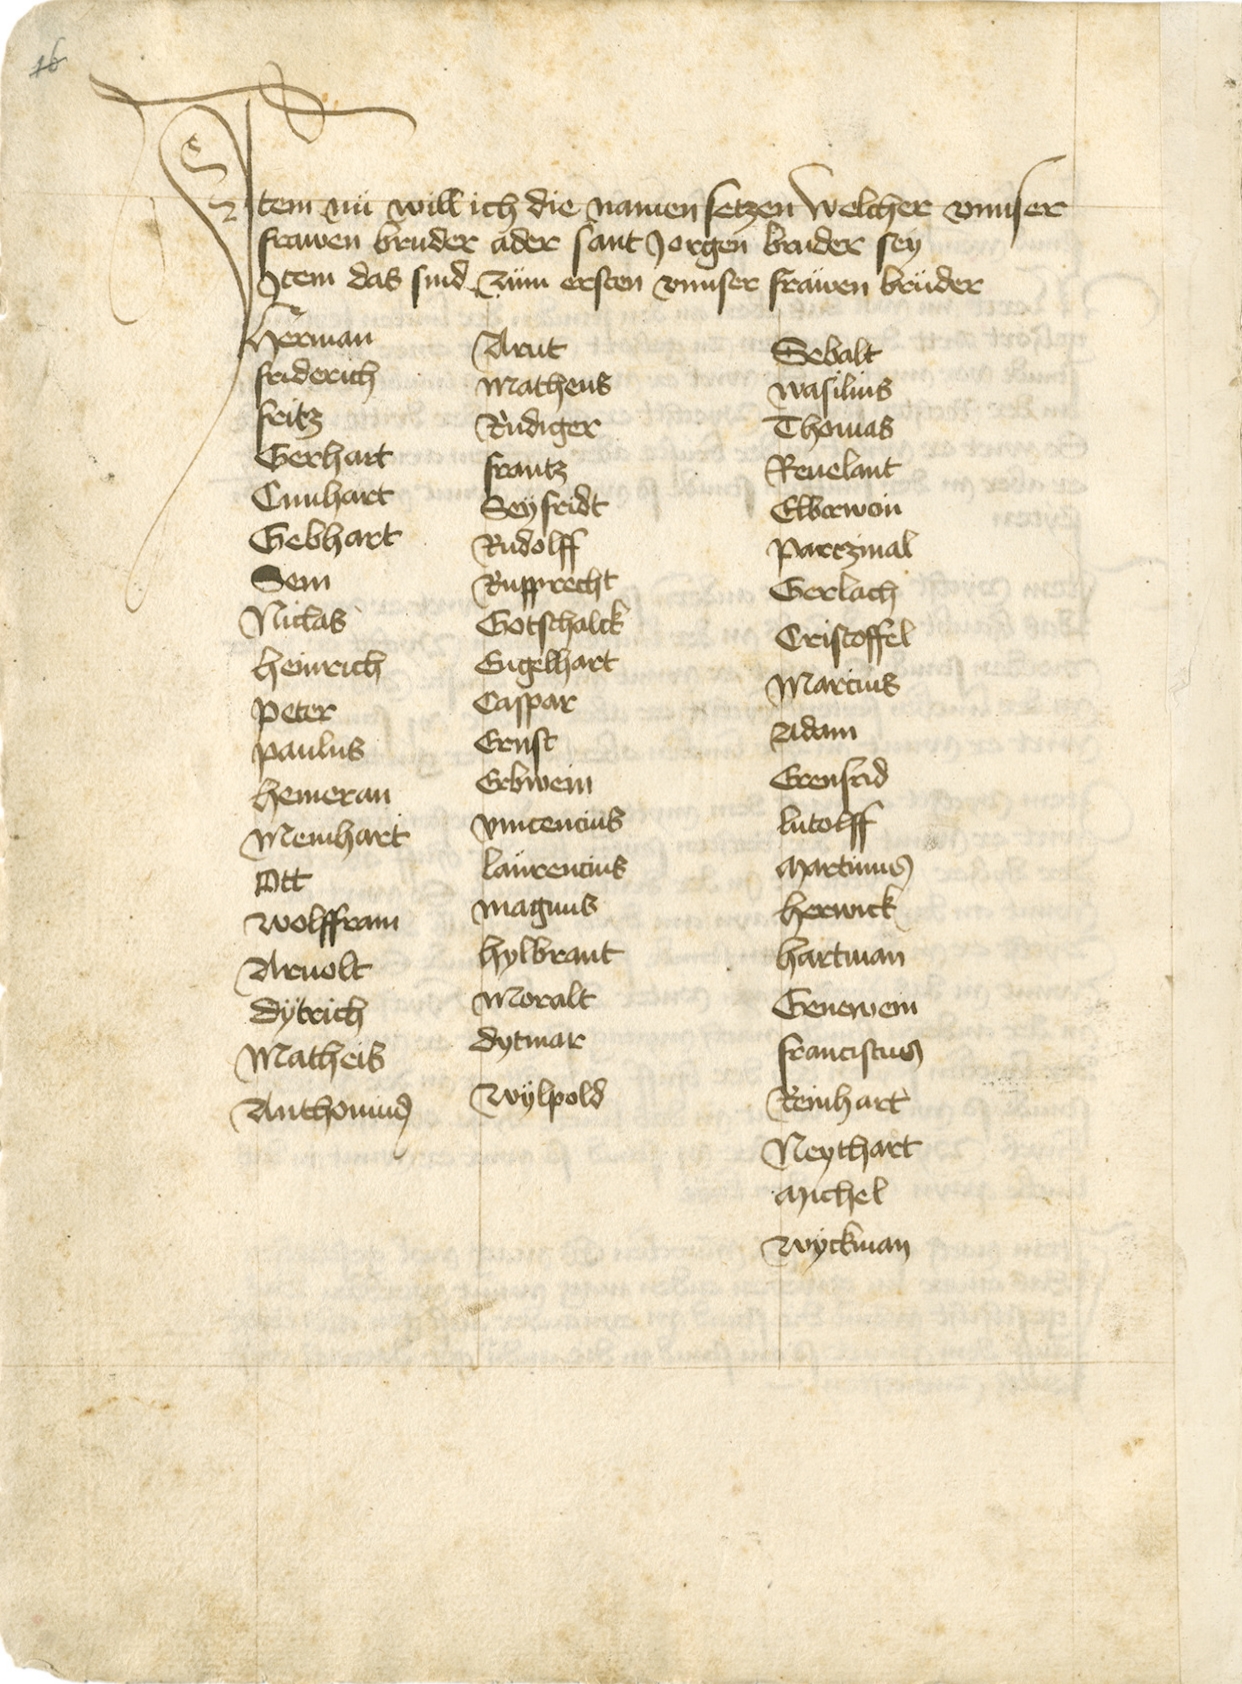 16
Item nü will ich die namen setzen welcher vnnser
frawen bruder ader sant Jorgen bruder sey
Item das sind zum ersten vnnser fräwen brüder
Herman
friderich
fritz
Gerhart
Cunhart
Gebhart
Sem
Niclas
heinrich
Peter
paulus
hemeran
Meinhart
Ott
Wolffram
Arnolt
Dÿtrich
Matheis
Anthonius
Arnt
Matheus
Rüdiger
frantz
Seyfridt
Rudolff
Rupprecht
Gotschalck
Engelhart
Caspar
Ernst
Erbwein
vincencius
laurencius
magnus
hylbrant
Moralt
dytmar
Wÿlpold
Sebalt
wasilius
Thomas
Reuelant
Elberwein
Partzinal
Gerlach
Cristoffel
Marcius
Adam
Erenfrid
lutolff
Martinus
herwick
hartman
Generwein
franciscus
Reinhart
Neythart
Michel
Wÿckman